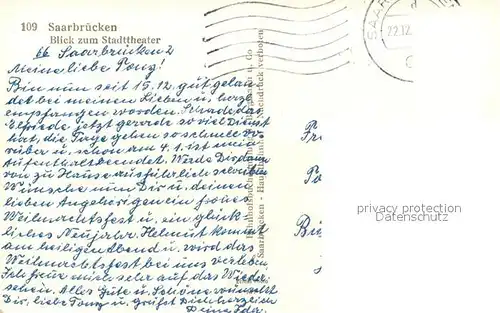 109 Saarbrücken
Blick zum Stadttheater
66 Saarbrücken 2
Meine liebe Tony!
Bin nun seit 15.12. gut gelan-
det bei meinen Lieben u. herzl.
empfangen worden. Schade das
Elfriede jetzt gerade so viel Dienst
hat, die Tage gehen so schnell vo-
rüber u. schon am 4.1. ist mein
Aufenthalt beendet. Werde Dir dann
von zu Hause ausführlich schreiben
Wünsche nun Dir u. deinen
lieben Angehörigen ein frohes
Weihnachtsfest u. ein glück-
liches Neujahr. Helmut kommt
am heiligen Abend u. wird das
Weihnachtsfest bei uns verleben.
Ich freue mich sehr auf das Wieder-
sehen. Alles Gute u. Schöne wünscht
Dir, liebe Tony u. grüßt Dich herzlich
Deine
Saarbrücken - Hauptbahnhof - Nachdruck verboten
SAAR
22.12.
privacy protection
Datenschutz